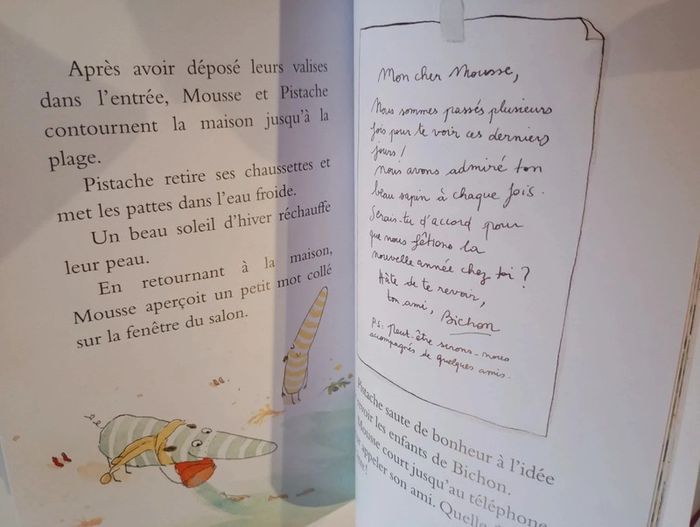 Après avoir déposé leurs valises
dans l'entrée, Mousse et Pistache
contournent la maison jusqu'à la
plage.
Pistache retire ses chaussettes et
met les pattes dans l'eau froide.
Un beau soleil d'hiver réchauffe
leur peau.
En retournant à la maison,
Mousse aperçoit un petit mot collé
sur la fenêtre du salon.
Mon cher Mousse,
Nous sommes passés plusieurs
fois pour te voir ces derniers
jours !
Nous avons admiré ton
beau sapin à chaque fois.
Serais-tu d'accord pour
que nous fêtions la
nouvelle année chez toi ?
Hâte de te revoir,
ton ami, Bichon
P.S : Peut-être serons-nous
accompagnés de quelques amis.
Pistache saute de bonheur à l'idée
revoir les enfants de Bichon.
Mousse court jusqu'au téléphone
appeler son ami. Quelle